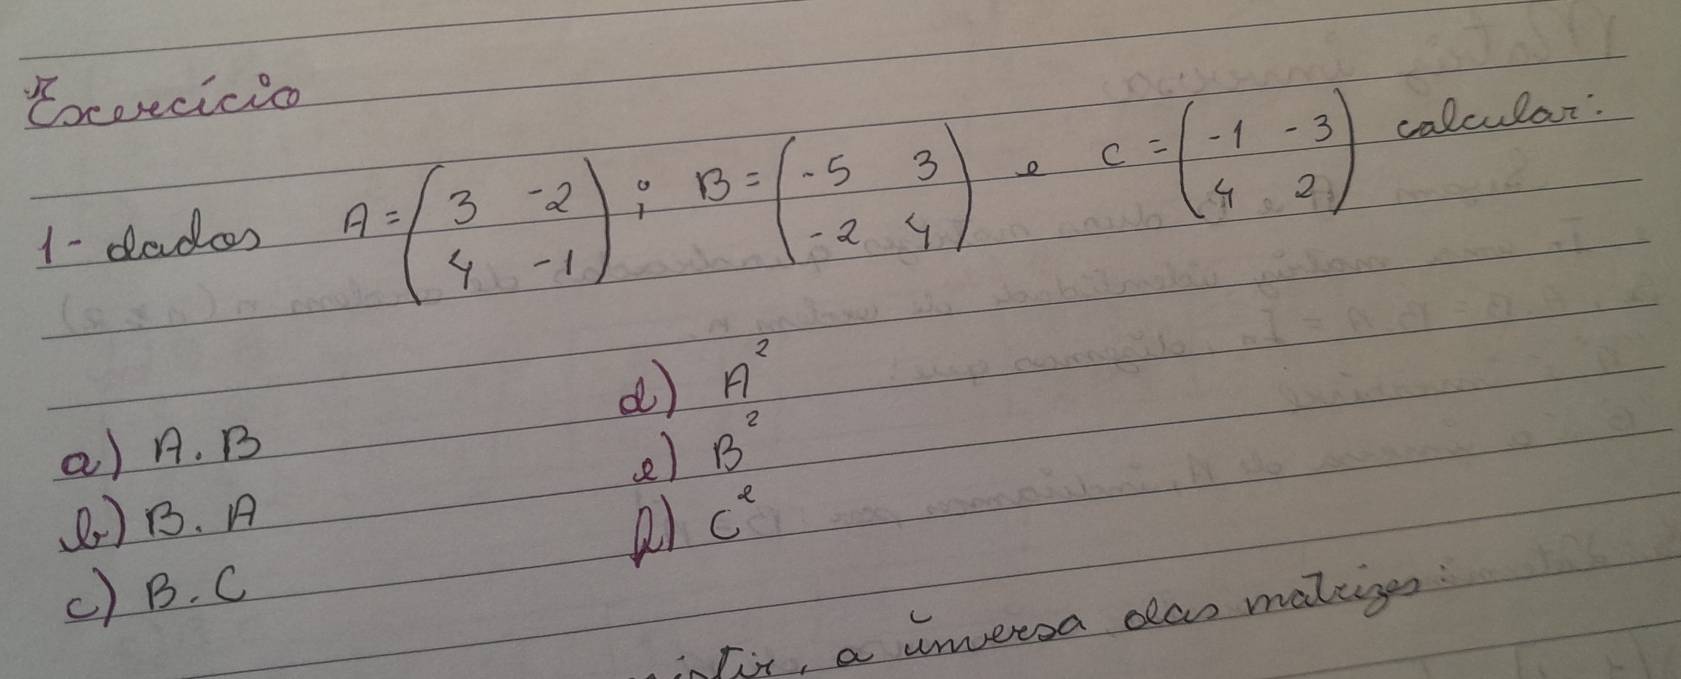 Exercício
1- dados A = (3 -2
4 -1) ; B = (-5 3
-2 4) e C = (-1 -3
4 2) calcular:
a) A.B
b) B.A
c) B.C
d) A²
e) B²
f) C²
a inversa das matrizes: